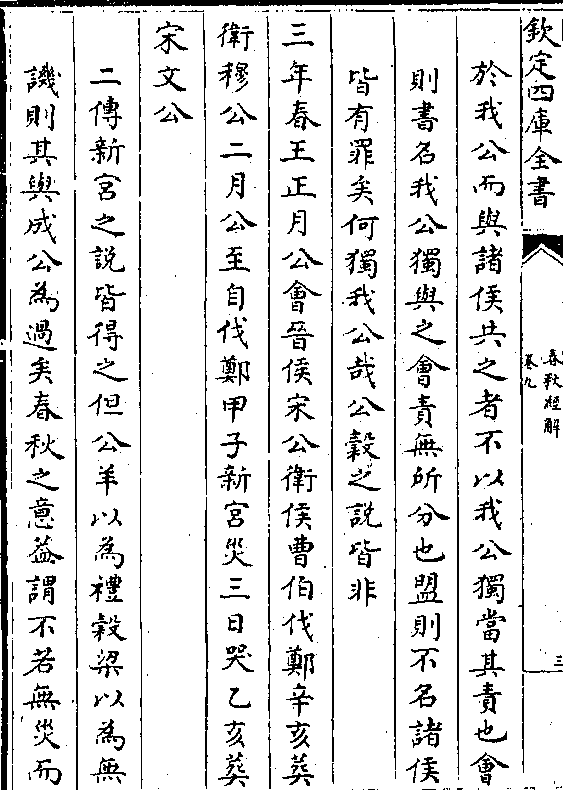 欽定四庫全書
春秋經解
卷九
三
於我公而與諸侯共之者不以我公獨當其責也會
則書名我公獨與之會責無所分也盟則不名諸侯
皆有罪矣何獨我公哉公穀之說皆非
三年春王正月公會晉侯宋公衛侯曹伯伐鄭辛亥葬
衛穆公二月公至自伐鄭甲子新宮災三日哭乙亥葬
宋文公
二傳新宮之說皆得之但公羊以為禮穀梁以為無
譏則其與成公為過矣春秋之意蓋謂不若無災而